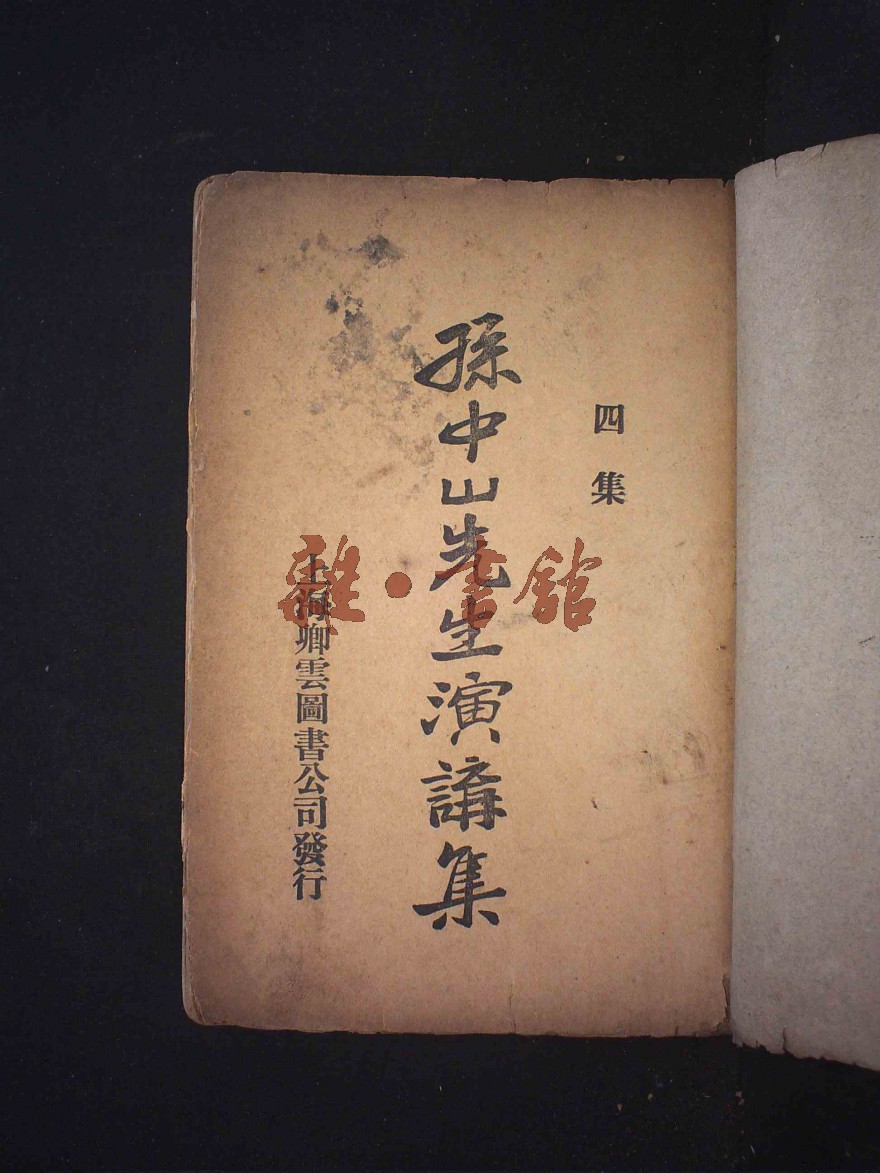 四集
孫中山先生演講集
上海卿雲圖書公司發行
雜·書館